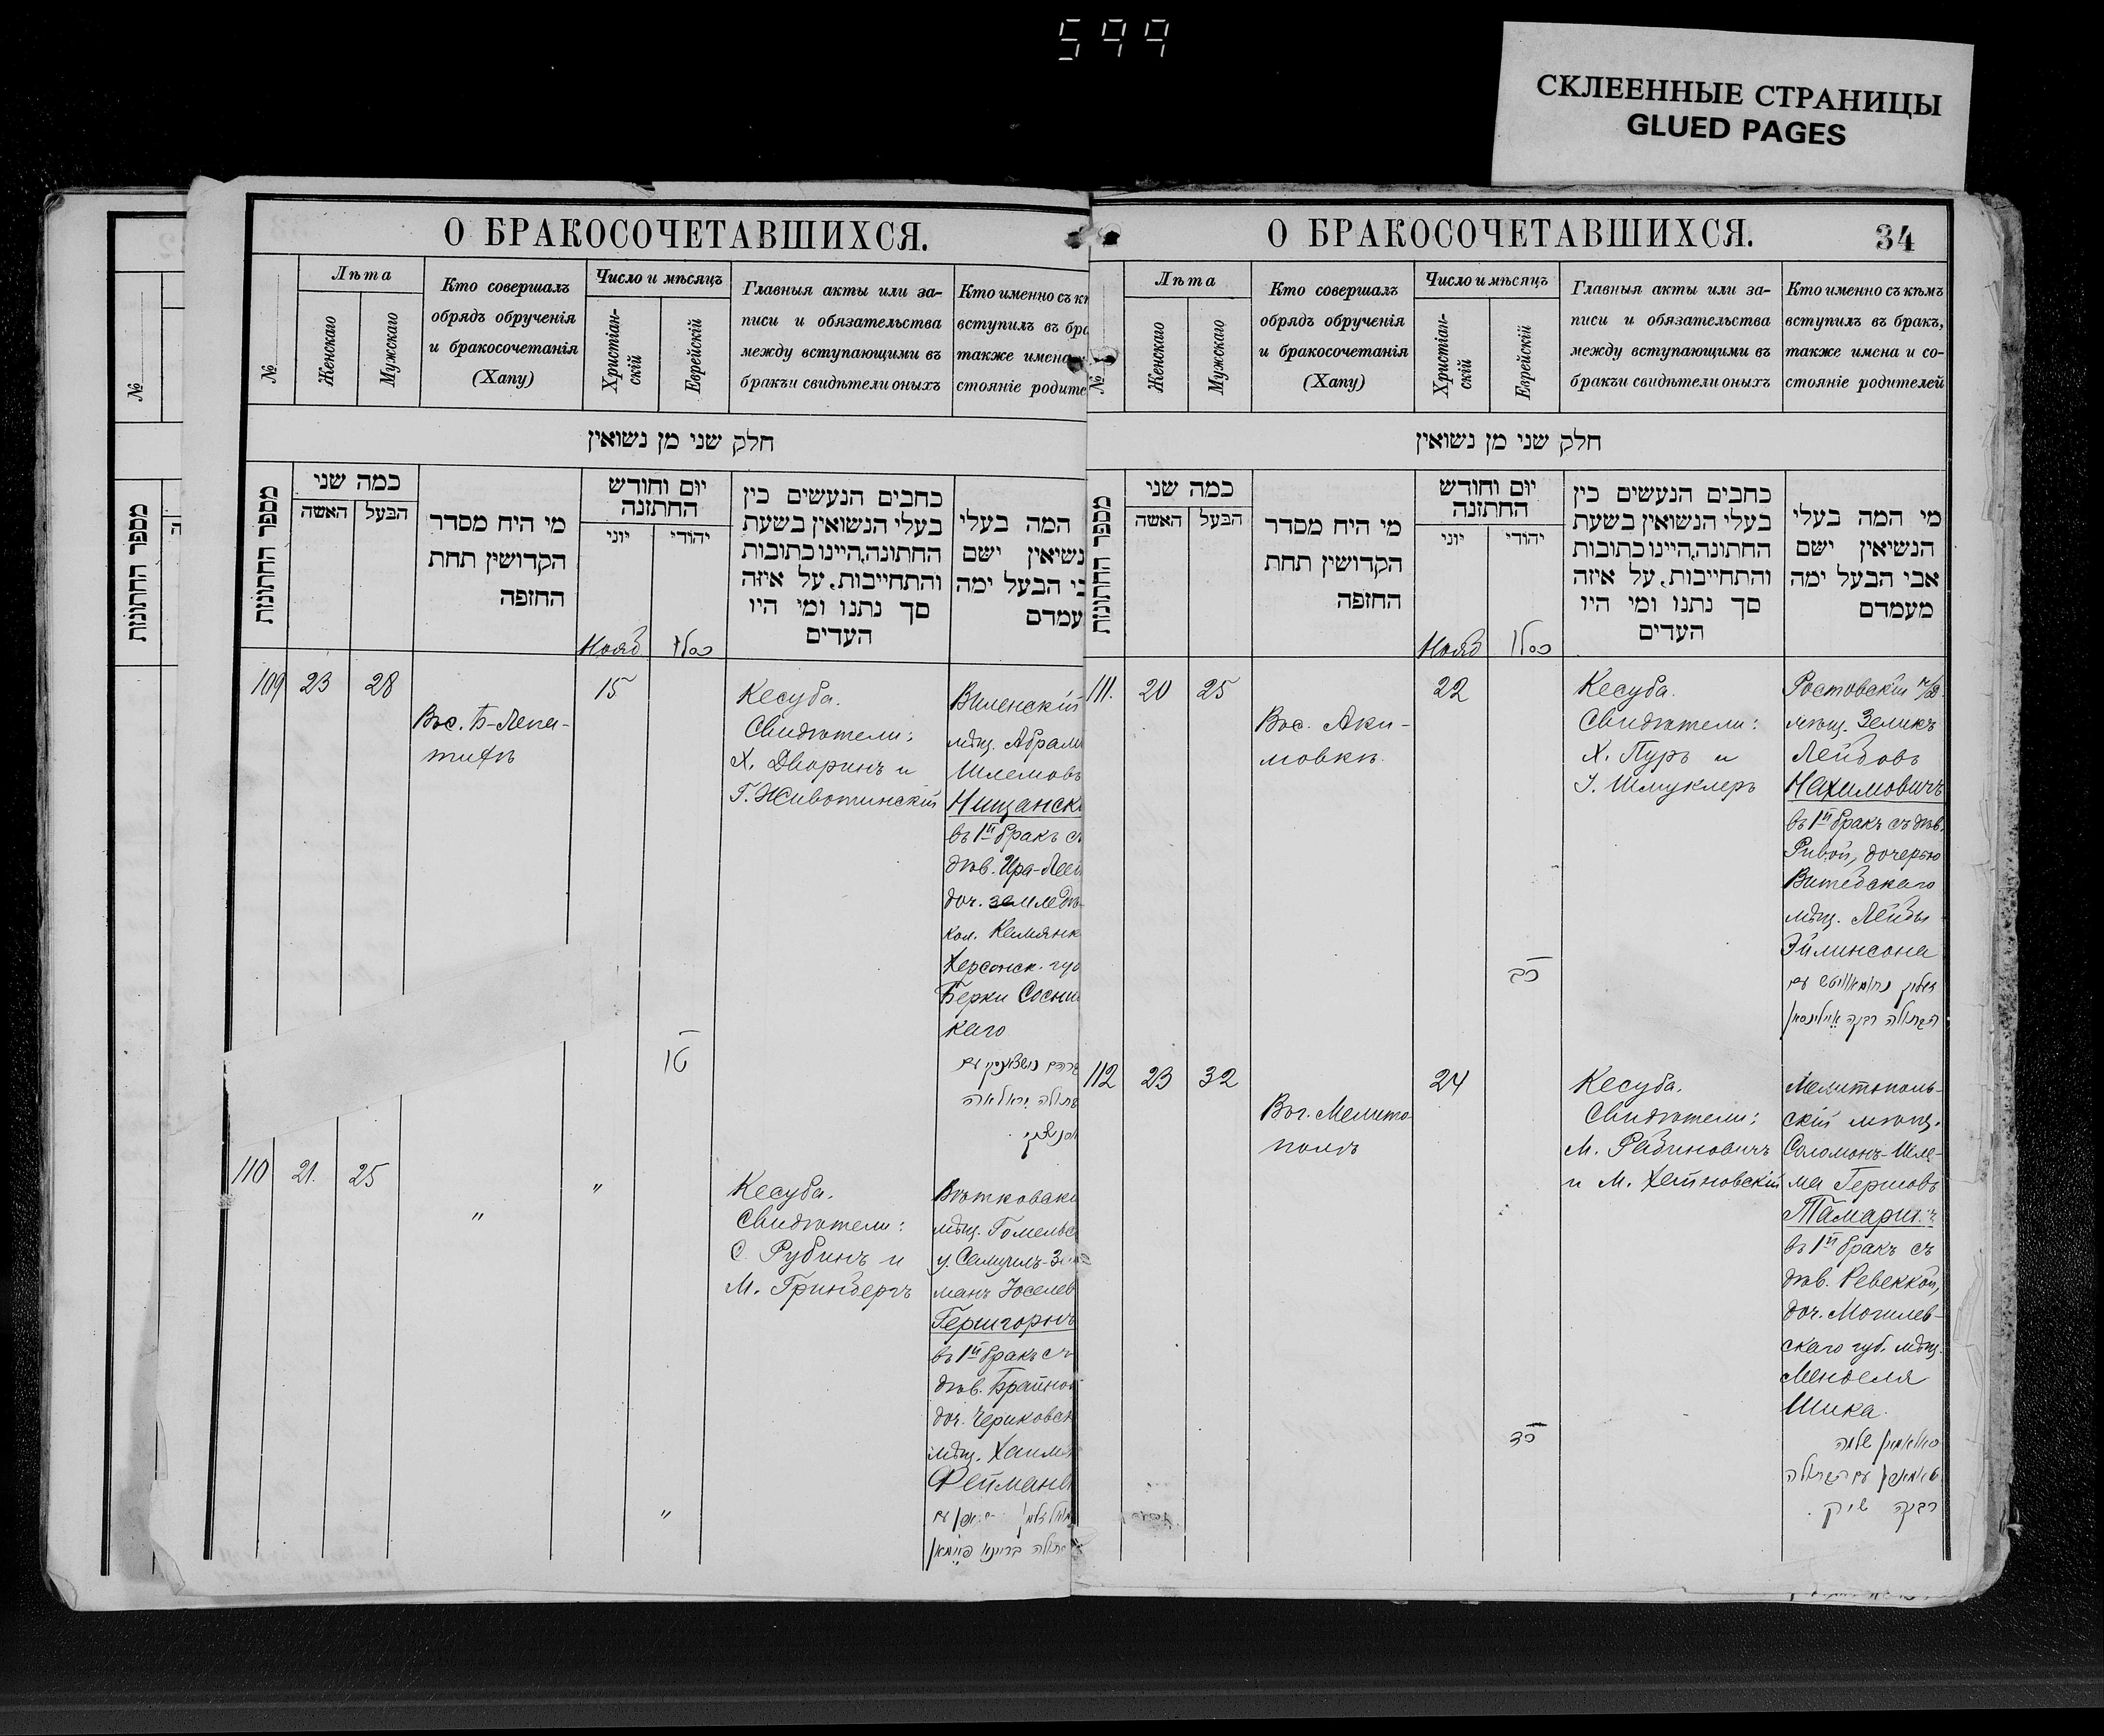 599
СКЛЕЕННЫЕ СТРАНИЦЫ
GLUED PAGES
№
מספר החתונות
О БРАКОСОЧЕТАВШИХСЯ.
№
Лѣта
Женскаго
Мужскаго
Кто совершалъ
обрядъ обрученія
и бракосочетанія
(Хапу)
Число и мѣсяцъ
Христіан-
скій
Еврейскій
Главныя акты или за-
писи и обязательства
между вступающими въ
бракъи свидѣтели оныхъ
Кто именно съ
вступилъ въ
также имена
стояніе
חלק שני מן נשואין
מספר החתונות
כמה שני
האשה
הבעל
מי היח מסדר
הקדושין תחת
החופה
יום וחודש
החתונה
יוני
יהודי
כחבים הנעשים כין
בעלי הנשואין בשעת
החתונה,היינו כתובות
והתחייבות, על איזה
סך נתנו ומי היו
העדים
המה בעלי
נשיאין ישם
הבעל ימה
Нояб
כסלו
109
23
28
Въ с. Б-Лепа-
тихѣ
15
טז
Кесуба.
Свидѣтели:
Х. Дворинъ и
Г. Животинскій
Виленскій
мѣщ. Абрамъ
Шлемовъ
Нищанск
въ 1й бракъ съ
дѣв.
доч. землед
кол.
Херсонск. губ
Берки
каго
110
21.
25
"
"
"
Кесуба.
Свидѣтели:
С. Рубинъ и
М. Гринбергъ
мѣщ. Гомельс
у. Самуилъ-
манъ Іоселев
Гершгорнъ
въ 1й бракъ съ
дѣв. Брайной
доч. Чериковск
мѣщ. Хаима
Феймана
О БРАКОСОЧЕТАВШИХСЯ.
34
№
Лѣта
Женскаго
Мужскаго
Кто совершалъ
обрядъ обрученія
и бракосочетанія
(Хапу)
Число и мѣсяцъ
Христіан-
скій
Еврейскій
Главныя акты или за-
писи и обязательства
между вступающими въ
бракъи свидѣтели оныхъ
Кто именно съ кѣмъ
вступилъ въ бракъ,
также имена и со-
стояніе родителей
חלק שני מן נשואין
מספר החתונות
כמה שני
האשה
הבעל
מי היח מסדר
הקדושין תחת
החופה
יום וחודש
החתונה
יוני
יהודי
כחבים הנעשים כין
בעלי הנשואין בשעת
החתונה,היינו כתובות
והתחייבות, על איזה
סך נתנו ומי היו
העדים
מי המה בעלי
הנשיאין ישם
אבי הבעל ימה
מעמדם
Нояб
כסלו
111.
20
25
Въ с. Аки-
мовкѣ.
22
כב
Кесуба.
Свидѣтели:
Х. Пуръ и
І. Шмуклеръ
Ростовскій н/Д
мѣщ. Зеликъ
Лейбовъ
Нахимовичъ
въ 1й бракъ съ дѣв.
Ривой, дочерью
Витебскаго
мѣщ. Лейбы
Эйлинсона
112
23
32
Въ г. Мелито-
полѣ
24
כד
Кесуба.
Свидѣтели:
М. Рабиновичъ
и М. Хайновскій
Мелитополь-
скій мѣщ.
Соломонъ-Шле-
ма Гершовъ
въ 1й бракъ съ
дѣв. Ревеккой,
доч. Могилев-
скаго губ. мѣщ.
Менделя
Шика.
רבקה שיק.